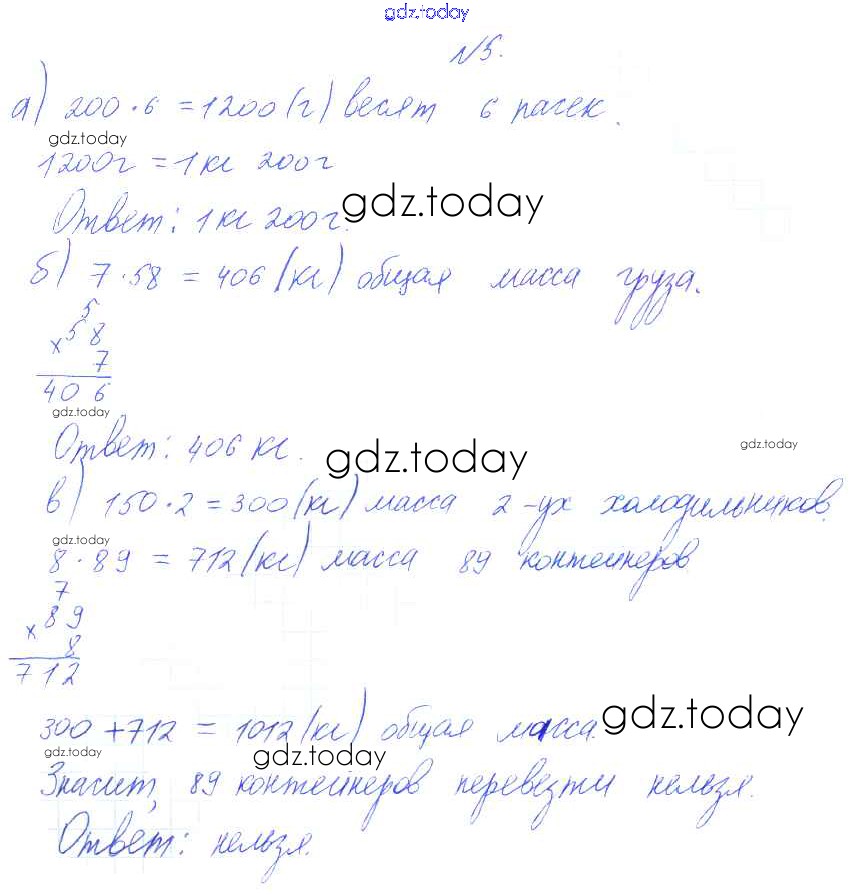 gdz.today
№5.
а) 200·6 = 1200 (г) весят 6 пачек.
gdz.today
1200г = 1 кг 200г
Ответ: 1 кг 200г.
gdz.today
б) 7·58 = 406 (кг) общая масса груза.
5
× 58
7
406
gdz.today
Ответ: 406 кг.
gdz.today
gdz.today
в) 150·2 = 300 (кг) масса 2-ух холодильников.
gdz.today
8·89 = 712 (кг) масса 89 контейнеров.
7
× 89
8
712
300 + 712 = 1012 (кг) общая масса.
gdz.today
gdz.today
gdz.today
Значит, 89 контейнеров перевезти нельзя.
Ответ: нельзя.